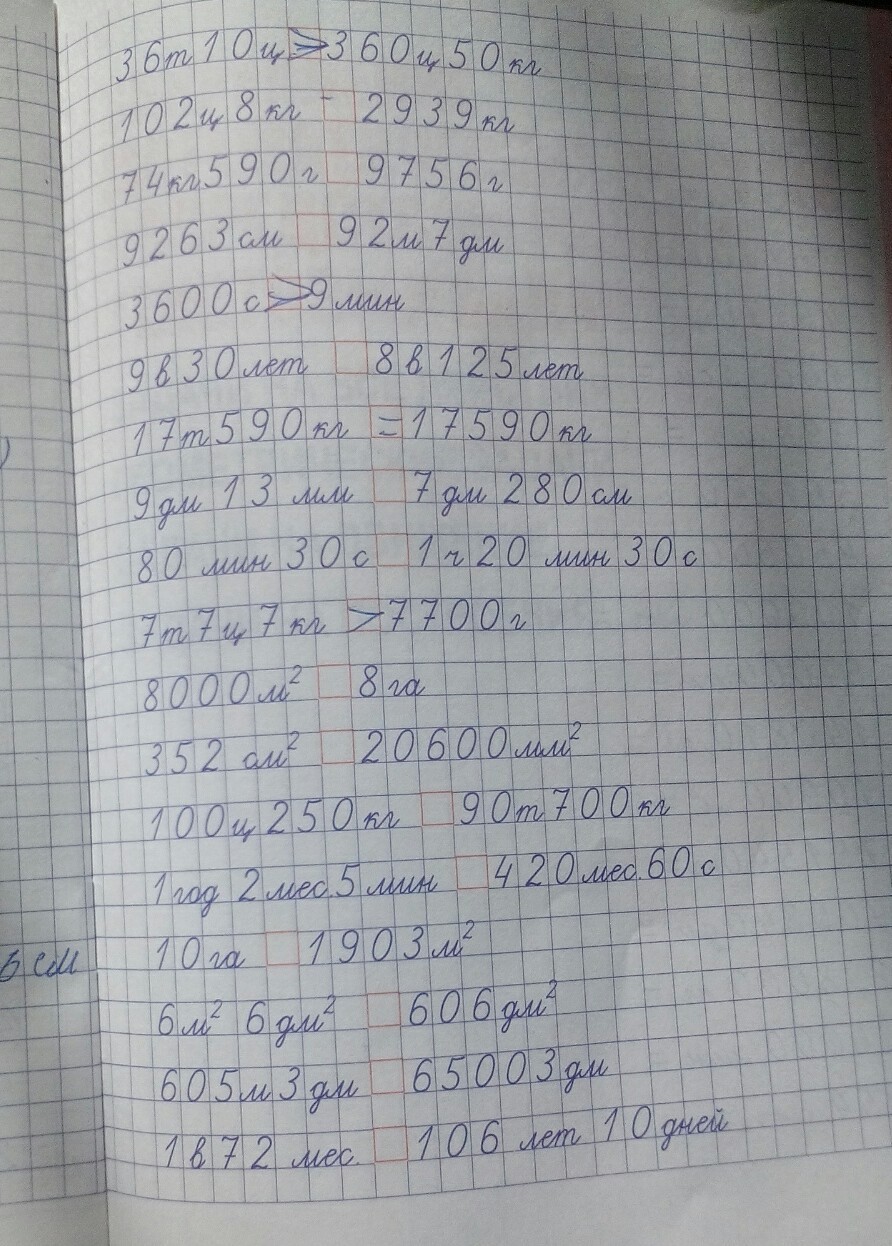 36т10ц > 360ц50кг
102ц8кг 2939кг
74кг590г 9756г
9263см 92м7дм
3600с > 9мин
9в30лет 8в125лет
17т590кг = 17590кг
9дм13мм 7дм280см
80 мин 30с 1ч20 мин 30с
7т7ц7кг > 7700г
8000м² 8га
352 см² 20600мм²
100ц250кг 90т700кг
1год 2мес.5мин 420мес.60с
10га 1903м²
6м² 6дм² 606дм²
605м3дм 65003дм
1в72 мес. 106 лет 10дней
см